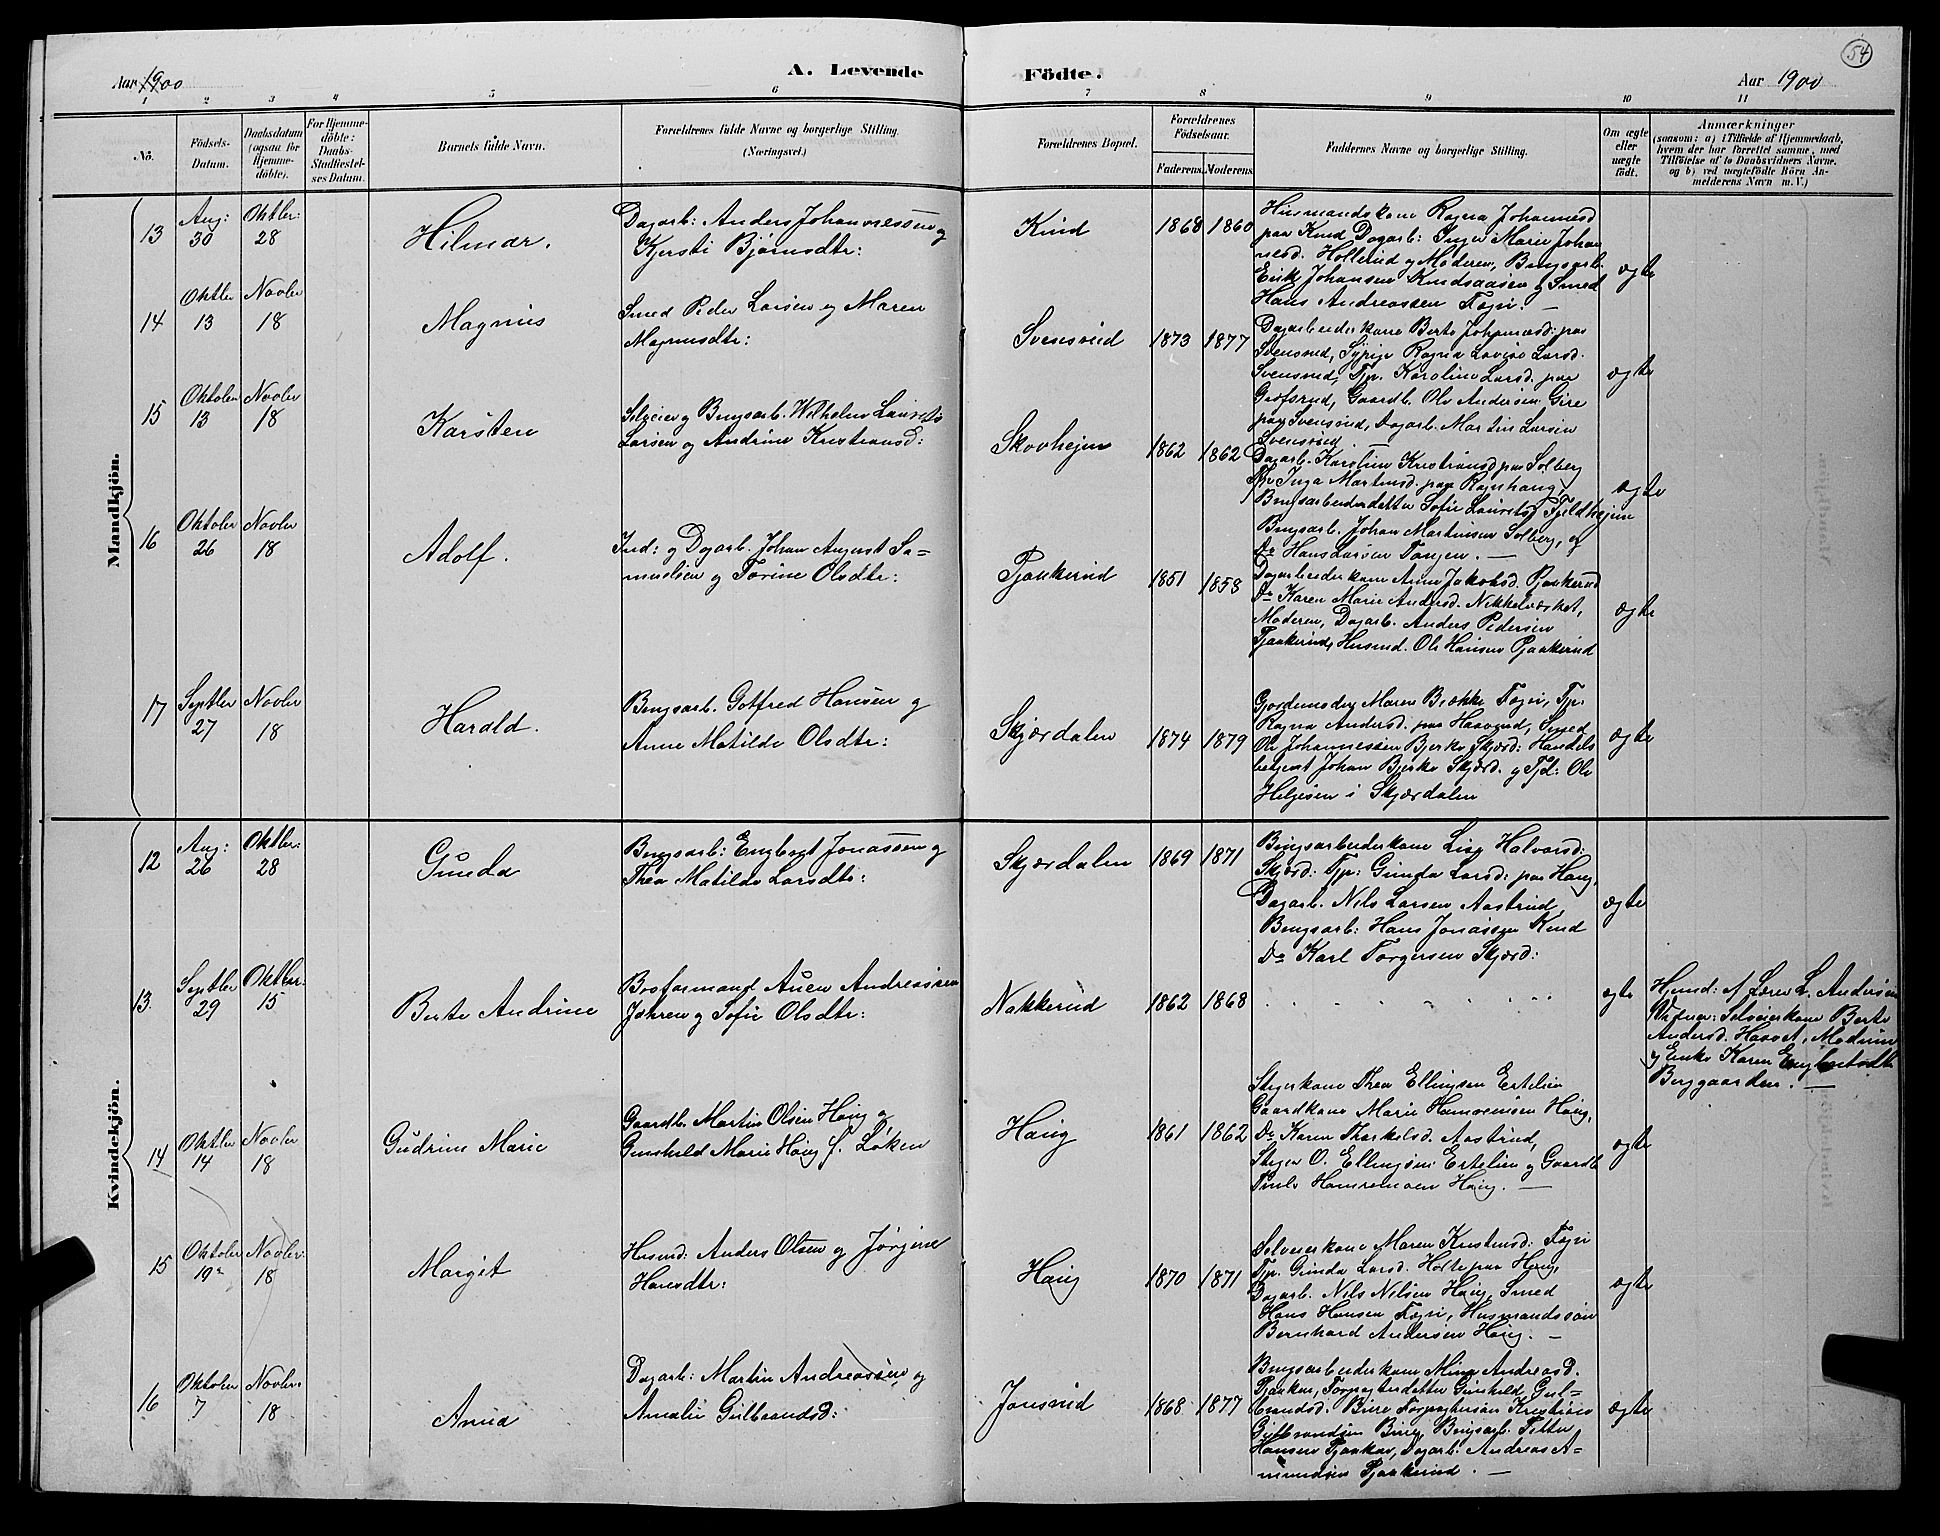 Aar 1900
A. Levende Födte.
54
Aar 1900
1 2 3 4 5 6 7 8 9 10 11
No.
Födsels-Datum.
Daabsdatum (ogsaa for Hjemme-döbte).
For Hjemme-döbte: Daabs-Stadfæstel-ses Datum.
Barnets fulde Navn.
Forældrenes fulde Navne og borgerlige Stilling. (Næringsvei.)
Forældrenes Bopæl.
Forældrenes Födselsaar.
Faderens. Moderens.
Faddernes Navne og borgerlige Stilling.
Om ægte eller uægte födt.
Anmærkninger
(saasom: a) i Tilfælde af Hjemmedaab,
hvem der har forrettet samme, med
Tilföielse af to Daabsvidners Navne.
og b) ved uægtefödte Börn An-
melderens Navn m. V.)
Mandkjön.
13
Aug: 30
Oktbr: 28
Hilmar.
Dagarb: Anders Johannessen og
Kjersti Bjørnsdtr:
Knud
1868 1860
Husmandskone Ragna Johannesd
paa Knud Dagarb: Inger Marie Johan
nesd. Hollerud og Moderen, Brugsarb.
Erik Johansen Knudsaasen og Smed
Hans Andreassen Fagri. —
ægte
14
Oktbr 13
Novbr 18
Magnus
Smed Peder Larsen og Maren
Magnusdtr:
Svensrud
1873 1877
Dagarbeiderkone Berte Johannesd: paa
Svensrud, Sypige Ragna Lovise Larsd.
Svensrud, Tp. Karoline Larsd. paa
Grøfsrud, Gaardb. Ole Andersen Gire
paa Svensrud, Dagarb. Martin Larsen
Svensrud.
ægte
15
Oktober 13
Novbr 18
Karsten
Selveier og Brugsarb. Wilhelm Laurits
Larsen og Andrine Kristiansd:
Skovhejm
1862 1862
Dagarb. Karoline Kristiansd paa Solberg
Inga Martinsd. paa Rognhaug
Brugsarbeiderdatter Sofie Lauritsd Fjeldhejm
Brugsarb. Johan Martinsen Solberg, og
Do Hans Larsen Tangen. —
ægte
16
Oktober 26
Novbr 18
Adolf.
Ind: og Dagarb. Johan August Sa=
muelsen og Torine Olsdtr:
Pjaakerud
1851 1858
Dagarbeiderkone Anne Jakobsd. Pjaakerud
Do Karen Marie Andersd. Nikkelværket,
Moderen, Dagarb. Anders Pedersen
Pjaakerud, Husmd. Ole Hansen Pjaakerud
ægte
17
Septbr 27
Novbr 18
Harald.
Brugsarb. Gotfred Hansen og
Anne Matilde Olsdtr:
Skjærdalen
1874 1879
Gjordemoder Maren Brække Fagri, Tp.
Ragna Andersd. paa Haavrud, Smed
Ole Johannessen Bjerke Skjærd: Handels
betjent Johan Bjerke Skjærd. og Tjd: Ole
Helgesen i Skjærdalen
ægte
Kvindekjön.
12
Aug: 26
Oktbr: 28
Gunda
Brugsarb: Engbregt Jonassen og
Thea Matilde Larsdtr:
Skjærdalen
1869 1871
Brugsarbeiderkone Lise Halvorsd:
Skjærd: Tp: Gunda Larsd: paa Haug,
Dagarb. Nils Larsen Aastrud,
Brugsarb: Hans Jonassen Knud
Do Karl Torgersen Skjærd:
ægte
13.
Septbr 29
Oktbr: 15
Berte Andrine
Bosformand Anen Andreassen
Jahren og Sofie Olsdtr:
Nakkerud
1862 1868
ægte
Hjmd: af Lærer L. Andersen
Vidner: Selveierkone Berte
Andersd. Haavet, Moderen
og Enke Karen Engbretsdt
Berggaarden. —
14
Oktbr 14
Novbr 18
Gudrun Marie
Gaardb. Martin Olsen Haug og
Gunhild Marie Haug f. Løken
Haug
1861 1862
Stigerkone Thea Ellingsen Ertelien
Gaardkone Marie Hansen Haug,
Do Karen Thorkelsd. Aastrud,
Stiger O. Ellingsen Ertelien og Gaardb
Haug. —
ægte
15
Oktober 19
Novbr: 18
Margit
Husmd: Anders Olsen og Jørgine
Hansdtr:
Haug
1870 1871
Selveierkone Maren Kristensd: Fagri
Tp. Gunda Larsd. Holte paa Haug,
Dagarb. Nils Nilsen Haug, Smed
Hans Hansen Fagri, Husmandssøn
Bernhard Andersen Haug. —
ægte
16
Oktober 7
Novbr: 18
Anna
Dagarb: Martin Andreassen og
Amalie Gulbrandsd:
Jonsrud
1868 1877
Brugsarbeiderkone Mina Andreasd.
Pjaaker, Forpagterdatter Gunhild Gul=
brandsd. Bure Forpagtersøn Kristian
Gulbrandsen Bure, Brugsarb. Petter
Hansen Pjaaker, Dagarb. Andreas A=
mundsen Pjaakerud. —
ægte